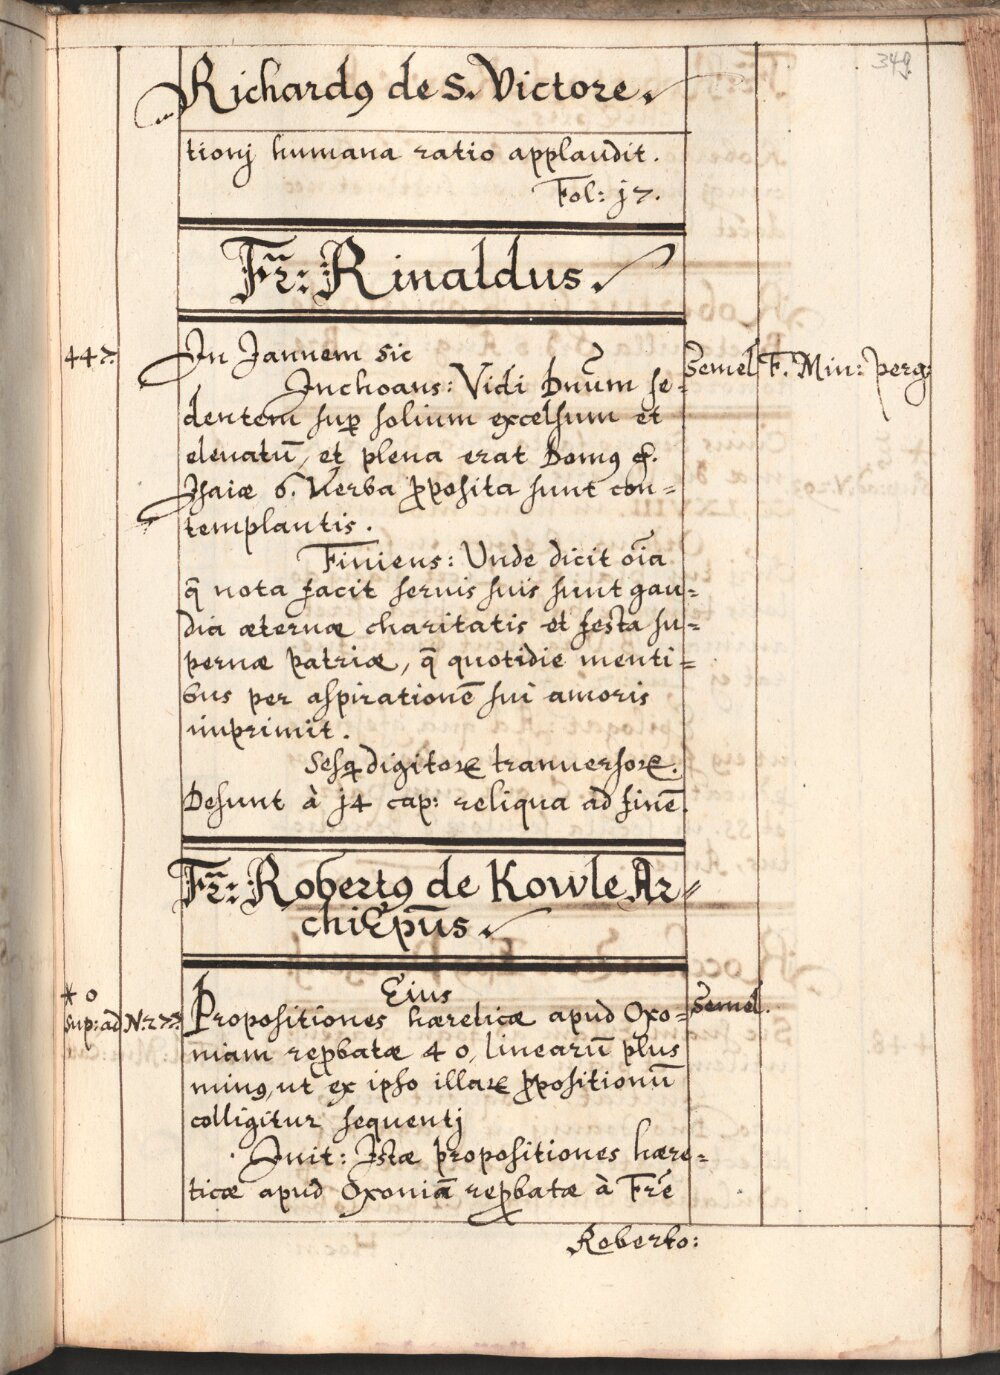 349.
Richardꝰ de S. Victore.
tionj humana ratio applaudit.
Fol: j7.
Fr̃: Rinaldus.
447. In Jannem sic Semel F. Min: perg:
Inchoans: Vidi Dnũm se=
dentem suꝑ solium excelsum et
eleuatũ, et plena erat Domꝰ &.
Isaiæ 6. Verba ꝓposita sunt con=
templantis.
Finiens: Unde dicit oĩa
q̃ nota facit seruis suis sunt gau=
dia æternæ charitatis et festa su=
pernæ patriæ, q̃ quotidie menti=
bus per aspirationẽ sui amoris
imprimit.
Sesq digitoꝝ tranuersoꝝ.
Desunt à j4 cap: reliqua ad finẽ.
Fr̃: Robertꝰ de Kowle Ar=
chiEpũs.
* o
Sup: ad N: 277.
Eius
Propositiones hæreticæ apud Oxo= Semel.
niam reꝓbatæ 40, linearũ plus
minꝰ, ut ex ipso illaꝝ ꝓpositionũ
colligitur sequentj
Init: Istæ propositiones hære=
ticæ apud Oxoniã reꝓbatæ à Frẽ
Roberto: